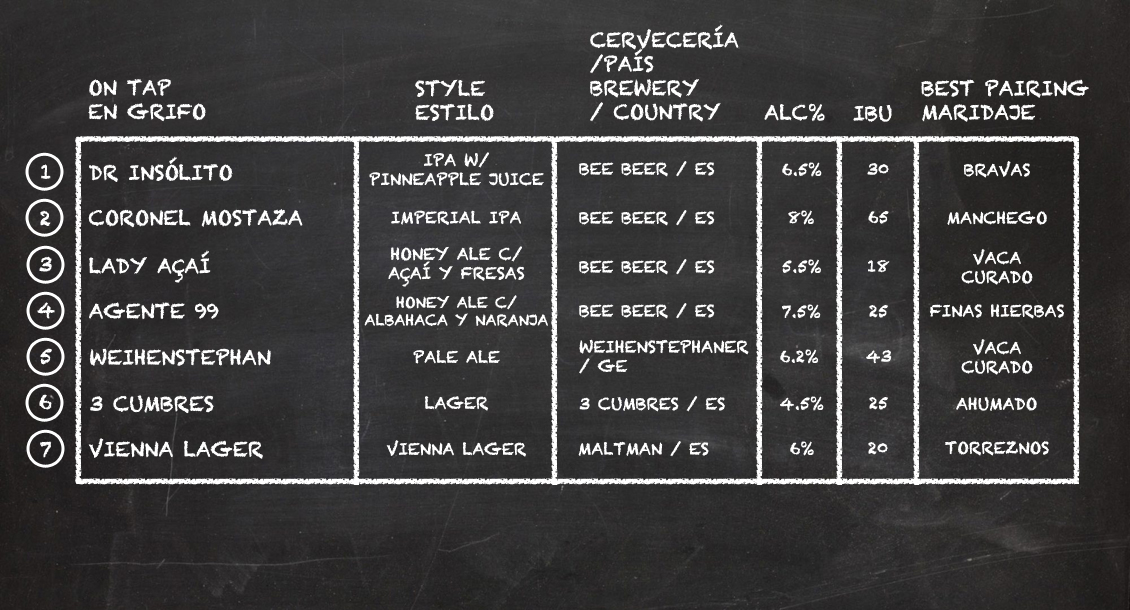 ON TAP
EN GRIFO
STYLE
ESTILO
CERVECERÍA
/PAÍS
BREWERY
/ COUNTRY
ALC%
IBU
BEST PAIRING
MARIDAJE
1
DR INSÓLITO
IPA W/
PINNEAPPLE JUICE
BEE BEER / ES
6.5%
30
BRAVAS
2
CORONEL MOSTAZA
IMPERIAL IPA
BEE BEER / ES
8%
65
MANCHEGO
3
LADY AÇAÍ
HONEY ALE C/
AÇAÍ Y FRESAS
BEE BEER / ES
5.5%
18
VACA
CURADO
4
AGENTE 99
HONEY ALE C/
ALBAHACA Y NARANJA
BEE BEER / ES
7.5%
25
FINAS HIERBAS
5
WEIHENSTEPHAN
PALE ALE
WEIHENSTEPHANER
/ GE
6.2%
43
VACA
CURADO
6
3 CUMBRES
LAGER
3 CUMBRES / ES
4.5%
25
AHUMADO
7
VIENNA LAGER
VIENNA LAGER
MALTMAN / ES
6%
20
TORREZNOS